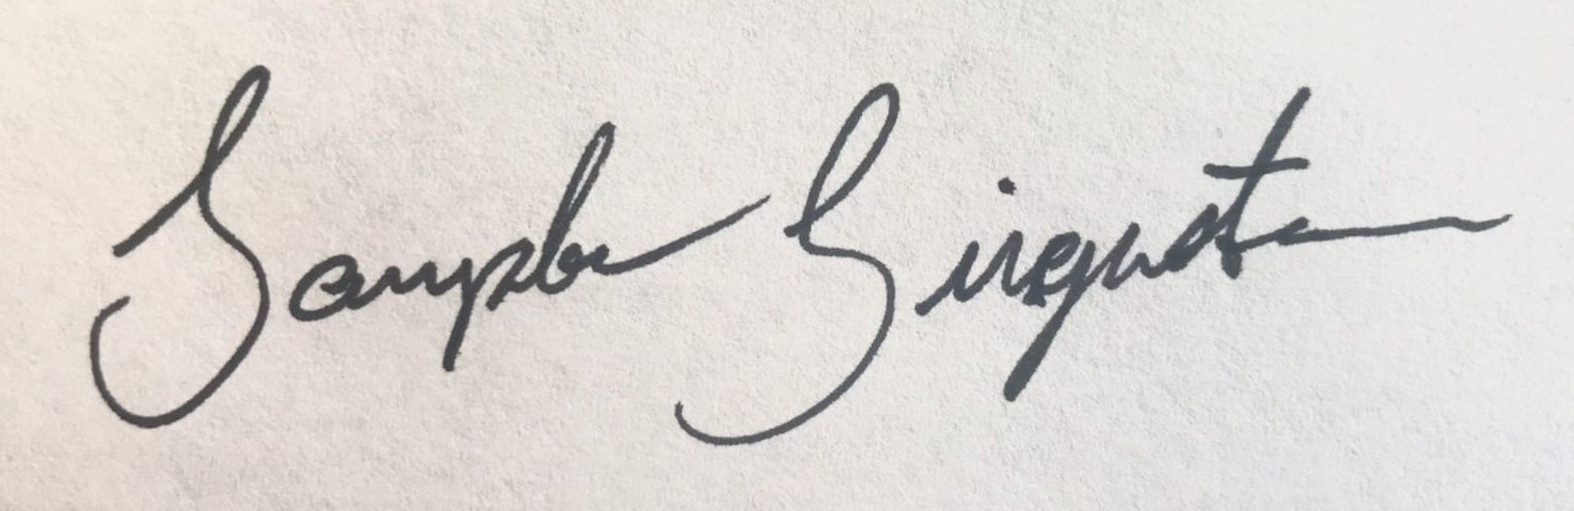 Sample Signature